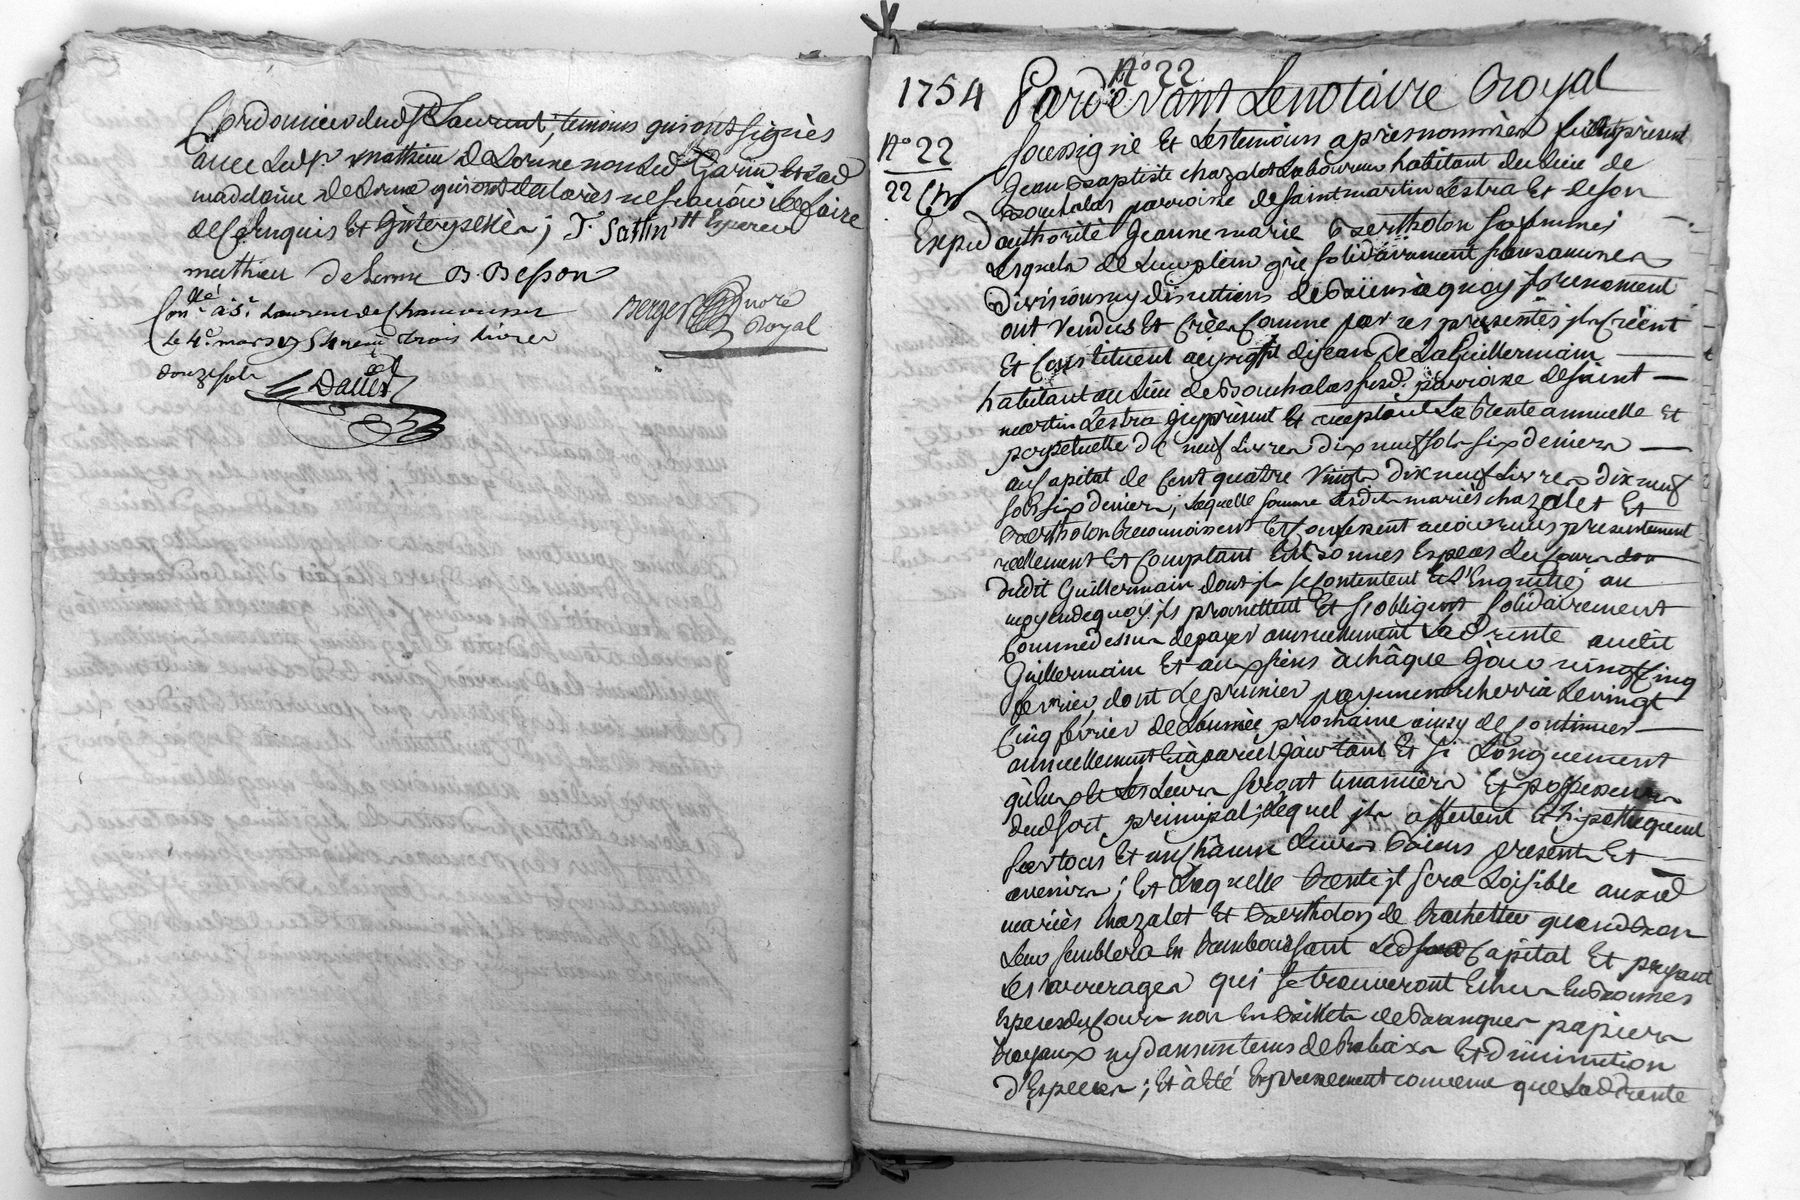 Cordonnier dud St Laurent, temoins qui ont signés
avec led sr mathieu Delorme non led Garin et lad
madelaine Delorme qui ont declarés ne sçavoir le faire
de ce enquis et Interpellés ; J. Sattin
mathieu Delorme B. Besson
Conllé à St Laurent de Chamousset Berger Nore
le 4e mars 1754 reçu trois livres Royal
douze sols
Dalles
1754 No 22
Pardevant Le notaire Royal
No 22
22
Soussigné Et Les temoins apres nommés fut présent
Jean Baptiste chazalet Laboureur habitant du lieu de
Bouchalas parroisse de saint martin Lestra Et de son
Exped authorité Jeanne marie Bertholon sa femme
Lesquels de Leur plein gré solidairement sans aucunes
Divisions ny discutions de Biens à quoy ils renoncent
ont Vendus Et Créés Comme par ces presentes ils Créent
Et Constituent à Jean De La Guillermain
habitant au lieu de Bouchalas susd. parroisse de saint
martin Lestra Icy présent Et acceptant La Rente annuelle Et
perpetuelle de neuf Livres dix neuf sols six deniers
au Capital de Cent quatre Vingts dix neuf Livres dix neuf
sols six deniers ; Laquelle somme Lesdits mariés chazalet Et
Bertholon Reconnoissent Et Confessent avoir reçus presentement
réellement Et Comptant En Bonnes Especes du Cours
dudit Guillermain dont ils se Contentent Et L'En quitte ; au
moyen de quoy ils promettent Et s'obligent solidairement
Comme dessus de payer annuellement Lad Rente audit
Guillermain Et aux siens à châque Jour vingt Cinq
fevrier, dont Le premier payement cherra Le vingt
Cinq fevrier de L'année prochaine ainsy de Continuer
annuellement Et à pareil Jour tant Et si Longuement
qu'Eux Et Les Leurs seront tenanciers Et possesseurs
dud sort principal, Lequel ils affectent Et hipothequent
sur tous Et un chacun Leurs Biens presents Et
avenirs ; Et Laquelle Rente il sera Loisible auxd
mariés chazalet Et Bertholon de Rachetter quand Bon
Leur semblera En Remboursant Led Capital Et payant
Les arrerages qui se trouveront Echus En Bonnes
Especes du Cours non En Billets de Banques papiers
Royaux ny dans un tems de Rabaix Et diminution
d'Especes ; Et à Eté Expressement convenu que Lad Rente